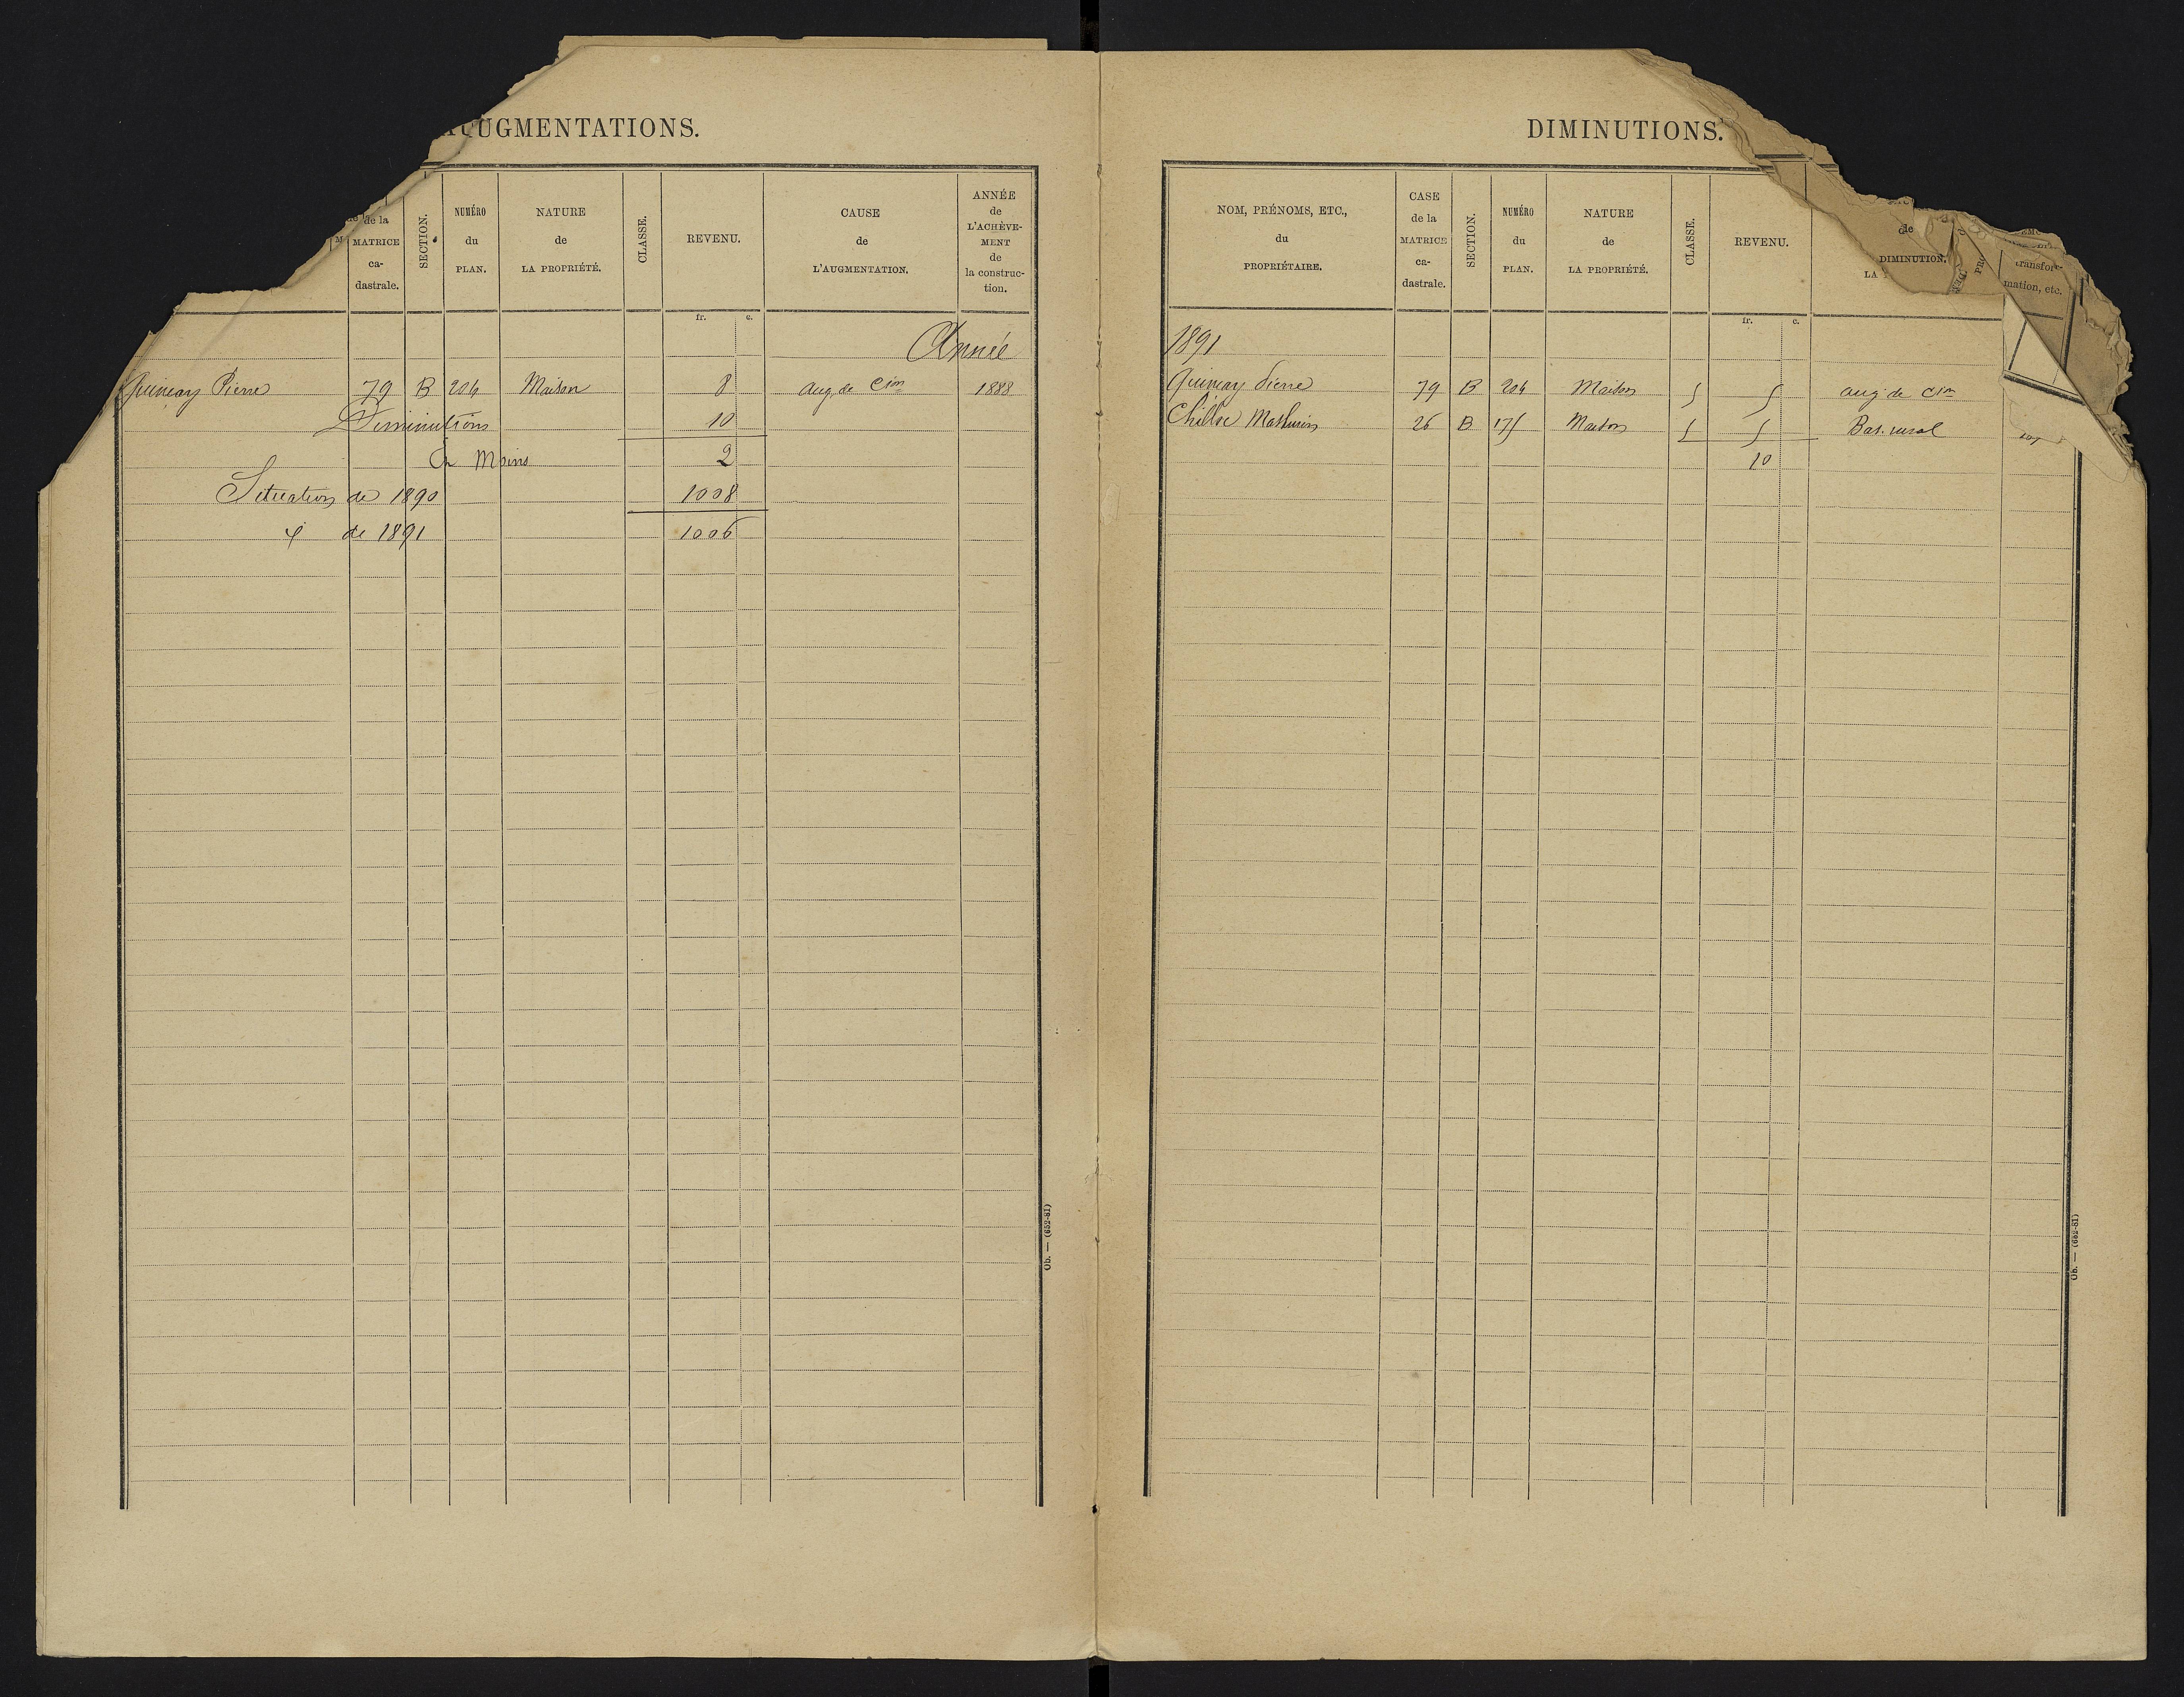 AUGMENTATIONS.
de la MATRICE ca- dastrale.
SECTION.
NUMÉRO du PLAN.
NATURE de LA PROPRIÉTÉ.
CLASSE.
REVENU.
CAUSE de L'AUGMENTATION.
ANNÉE de L'ACHÈVE- MENT de la construc- tion.
fr. c.
Année
Quimeay Pierre 79 B 206 Maison 8 aug. de Cion 1888
Diminutions 10
En Moins 2
Situation de 1890 1008
de 1891 1006
Ob. — (652-81)
DIMINUTIONS.
NOM, PRÉNOMS, ETC., du PROPRIÉTAIRE.
CASE de la MATRICE ca- dastrale.
SECTION.
NUMÉRO du PLAN.
NATURE de LA PROPRIÉTÉ.
CLASSE.
REVENU.
de
DIMINUTION.
LA
transfor- mation, etc.
fr. c.
1891
Quimeay Pierre 79 B 206 Maison 5 5 aug. de Cion
Mathurin 26 B 175 Maison 5 5 Bat. rural
10
Ob. — (652-81)